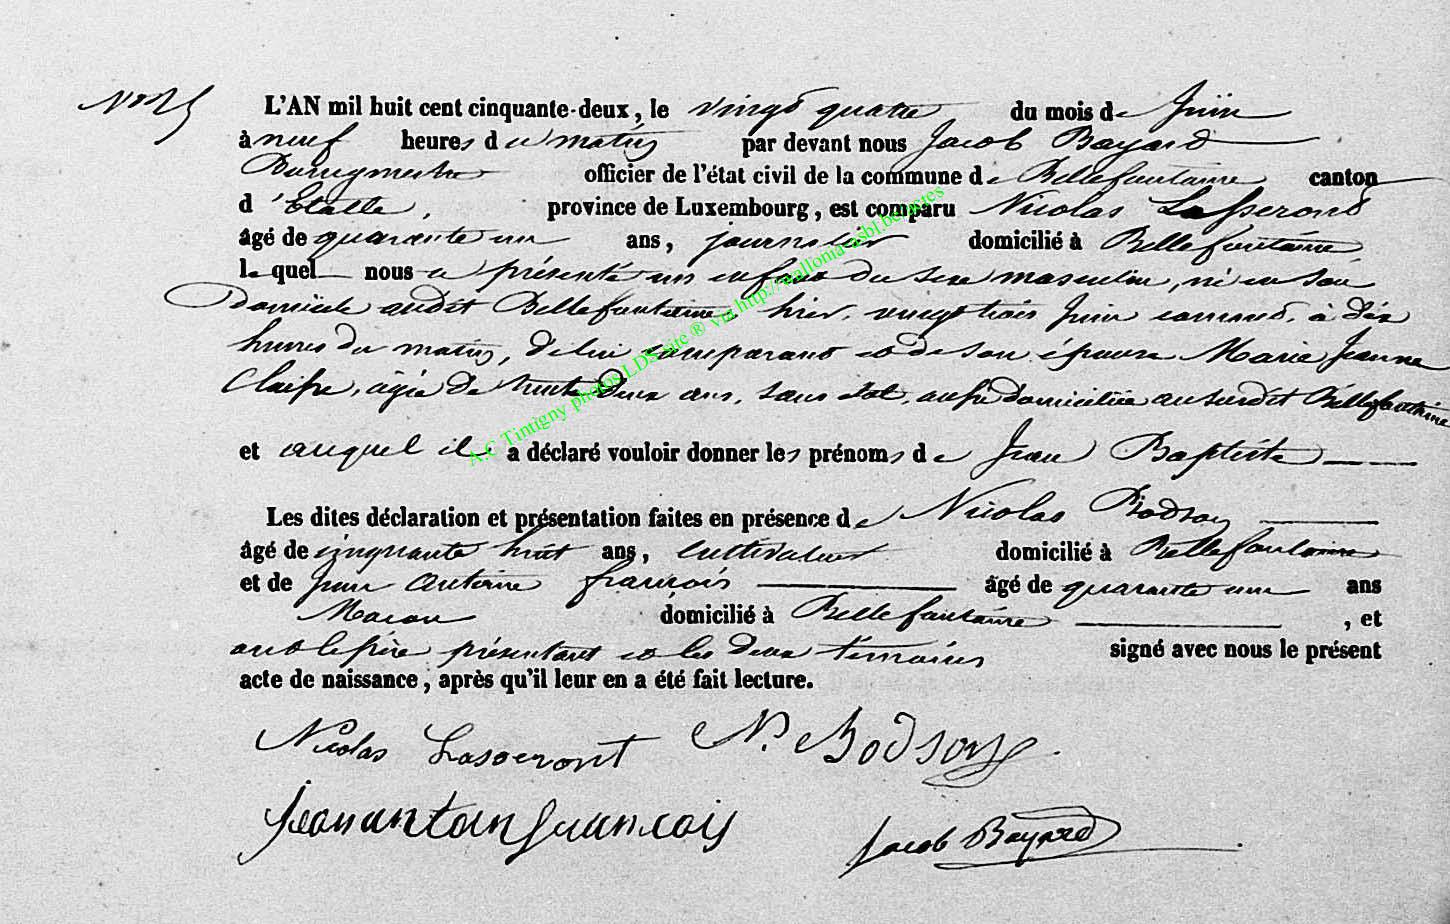 N° 25
L'AN mil huit cent cinquante-deux, le vingt quatre du mois de Juin
à neuf heures du matin par devant nous Jacob Bayard
Bourgmestre officier de l'état civil de la commune de Bellefontaine canton
d'Etalle, province de Luxembourg, est comparu Nicolas Lasseront
âgé de quarante un ans, journalier domicilié à Bellefontaine
lequel nous a présenté un enfant du sexe masculin, né en son
domicile audit Bellefontaine, hier, vingt trois Juin courant, à dix
heures du matin, de lui comparant et de son épouse Marie Jeanne
Claisse, âgée de trente deux ans, sans état, aussi domiciliée au susdit Bellefontaine
et auquel il a déclaré vouloir donner les prénoms de Jean Baptiste
Les dites déclaration et présentation faites en présence de Nicolas Bodson
âgé de cinquante huit ans, cultivateur domicilié à Bellefontaine
et de Jean Antoine François âgé de quarante un ans
Macon domicilié à Bellefontaine, et
ont le père présentant et les deux témoins signé avec nous le présent
acte de naissance, après qu'il leur en a été fait lecture.
Nicolas Lasseront N. Bodson
Jeanantoin françois Jacob Bayard
A.C Tintigny photos LDS site ® via http://wallonia-asbl.be/actes